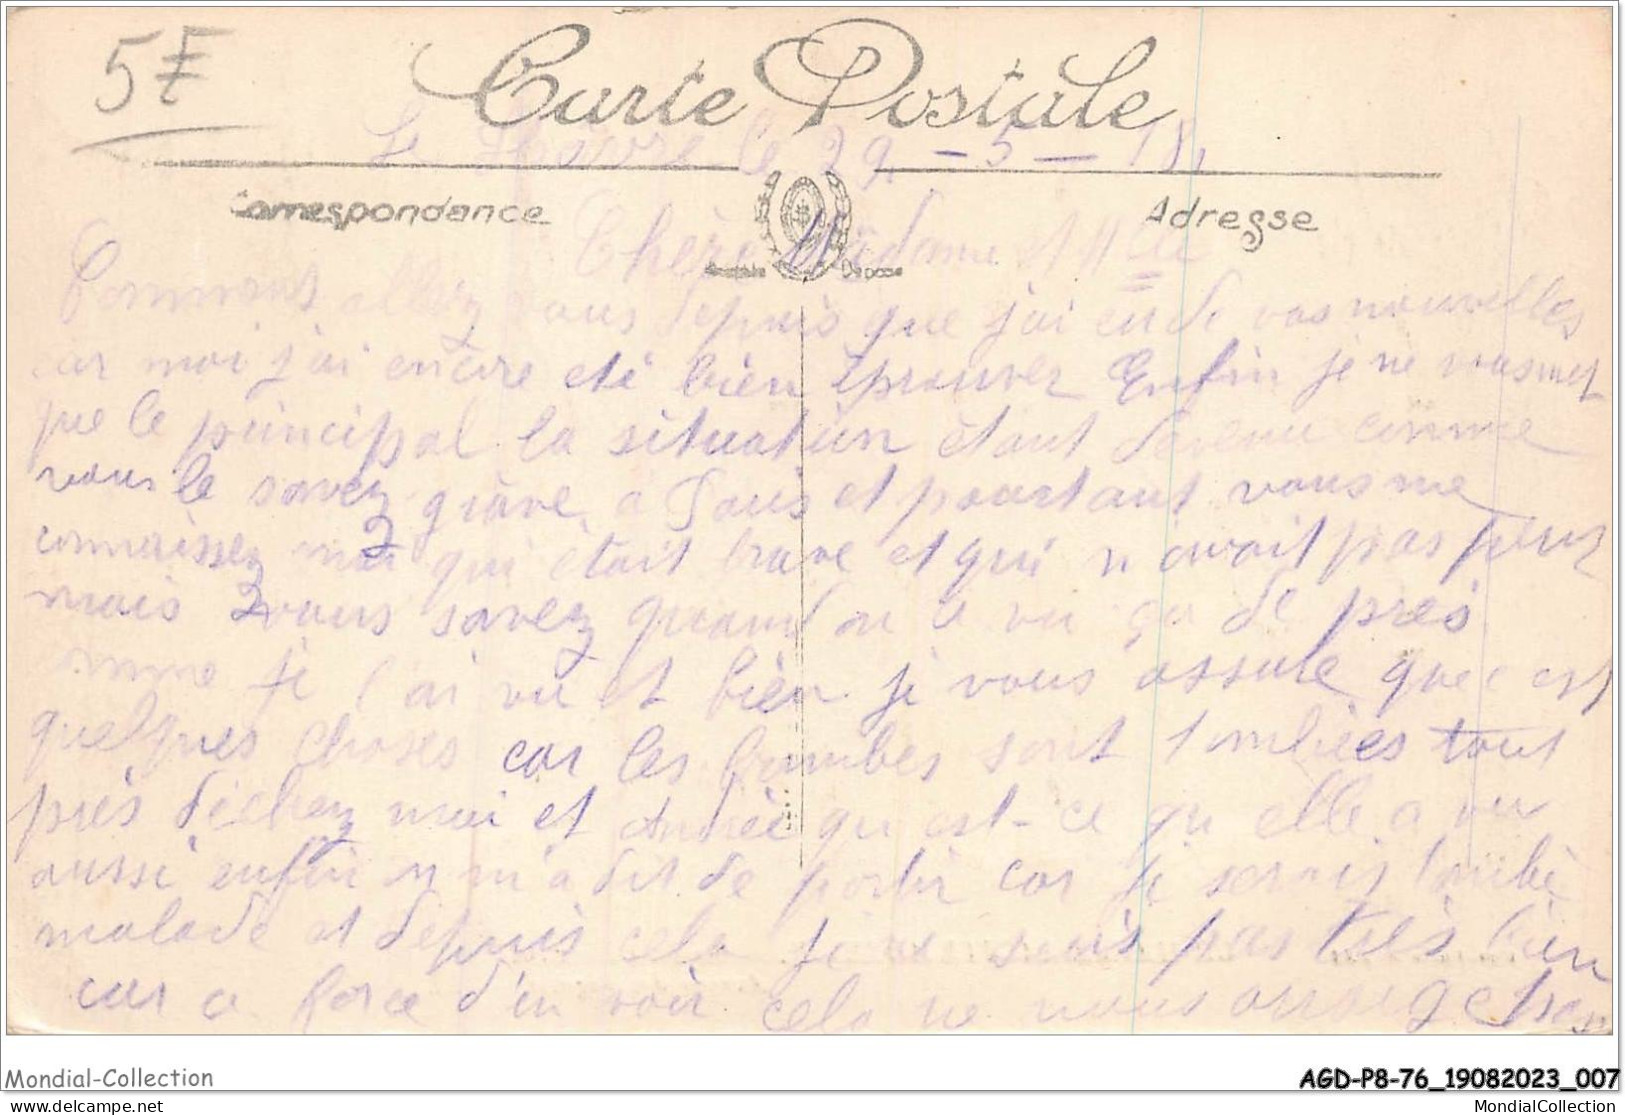 5F
Carte Postale
Le Hâvre le 29 - 5 - 18
Correspondance
Adresse
Chère Madame et Mlle
Comment allez vous depuis que j'ai eu de vos nouvelles
car moi j'ai encore eté bien éprouver Enfin je ne vous met
que le principal la situation étant devenu comme
vous le savez grave a Paris et pourtant vous me
connaissez moi qui était brave et qui n'avait pas peur
mais vous savez quand on a vu ça de près
comme je l'ai vu et bien je vous assure que c'est
quelques choses car les bombes sont tombées tout
près de chez moi et Andrée qu'est-ce qu'elle a vu
aussi enfin y m'a dit de partir car je serais tombé
malade et depuis cela je ne suis pas très bien
car a force d'en voir cela ne nous arrange pas
Mondial-Collection
AGD-P8-76_19082023_007
delcampe.net
MondialCollection